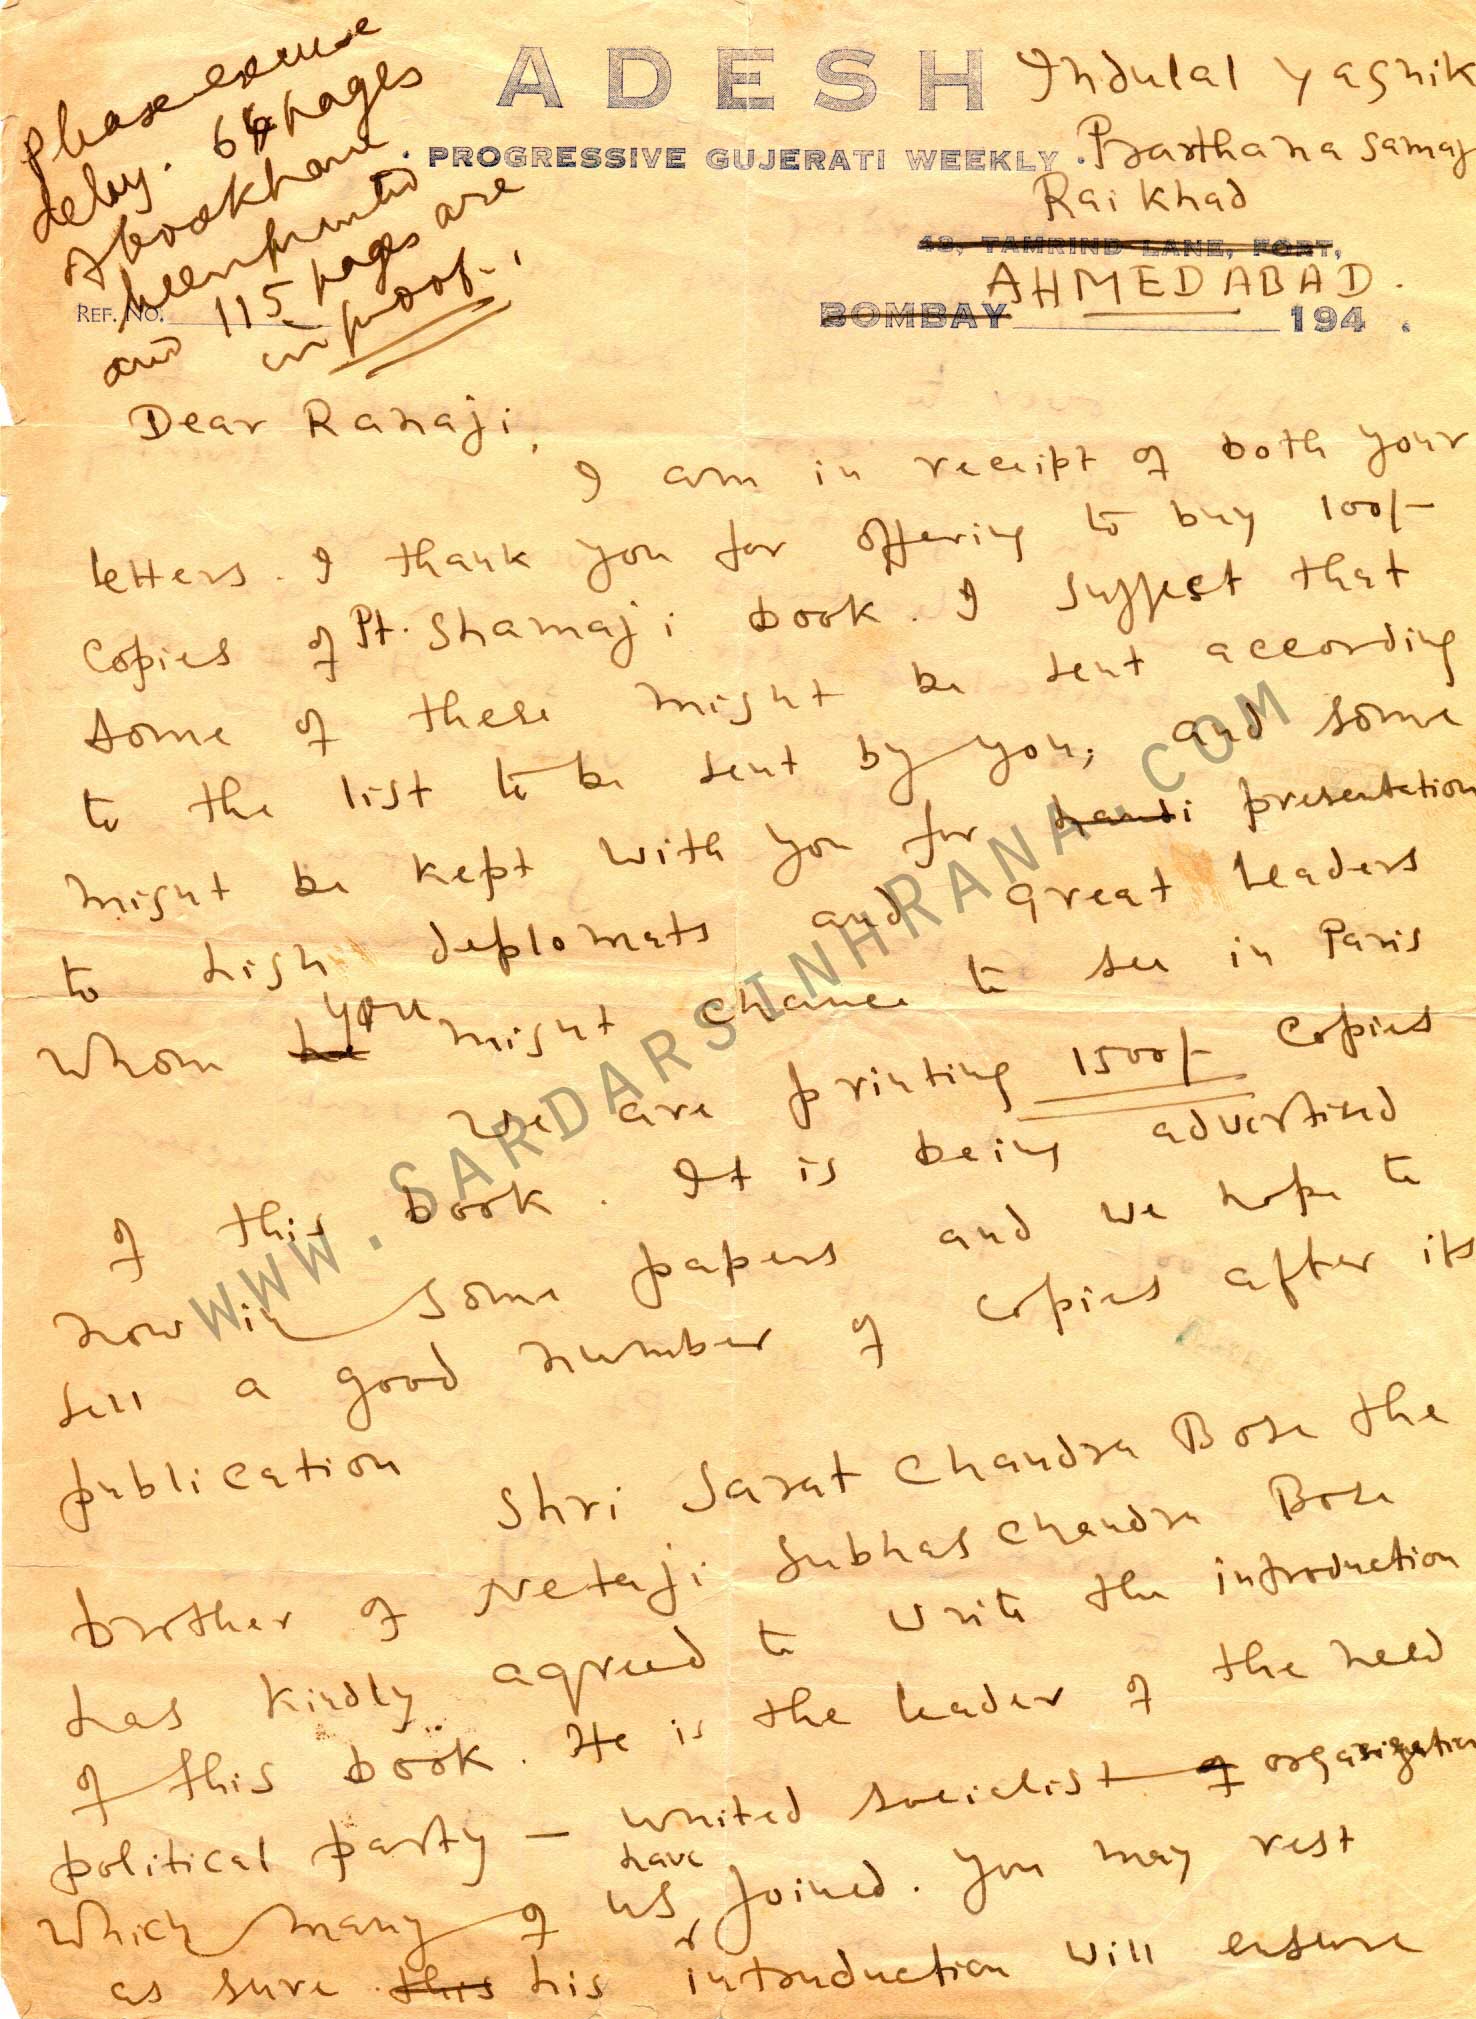 Please excuse
delay. 64 pages
of book have
been printed
and 115 pages are
in proof.
ADESH
PROGRESSIVE GUJERATI WEEKLY
Indulal Yagnik
Prarthana Samaj
Raikhad
48, TAMRIND LANE, FORT,
AHMEDABAD.
REF. NO.
BOMBAY 194 .
Dear Ranaji,
I am in receipt of both your
letters. I thank you for offering to buy 100/-
copies of Pt. Shamaji book. I suggest that
some of these might be sent according
to the list to be sent by you; and some
might be kept with you for presentation
to high deplomats and great leaders
whom he you might chance to see in Paris
We are printing 1500/- copies
of this book. It is being advertised
now in some papers and we hope to
sell a good number of copies after its
publication
Shri Sarat Chandra Bose the
brother of Netaji Subhas Chandra Bose
has kindly agreed to write the introduction
of this book. He is the leader of the need
political party - united socialist of organization
which many of us have joined. You may rest
as sure this his introduction will ensure
WWW.SARDARSINHRANA.COM